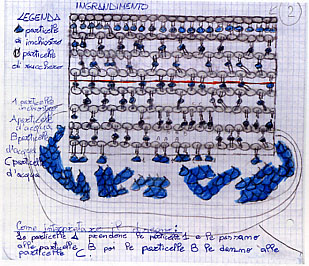 INGRANDIMENTO
2
LEGENDA
particelle
di inchiostro
particelle
di zucchero
1 particelle
inchiostro
A particelle
d'acqua
B particelle
d'acqua
C particelle
d'acqua
Come interpretare il disegno:
le particelle A prendono le particelle 1 e le passano
alle particelle B poi le particelle B le danno alle
particelle C.